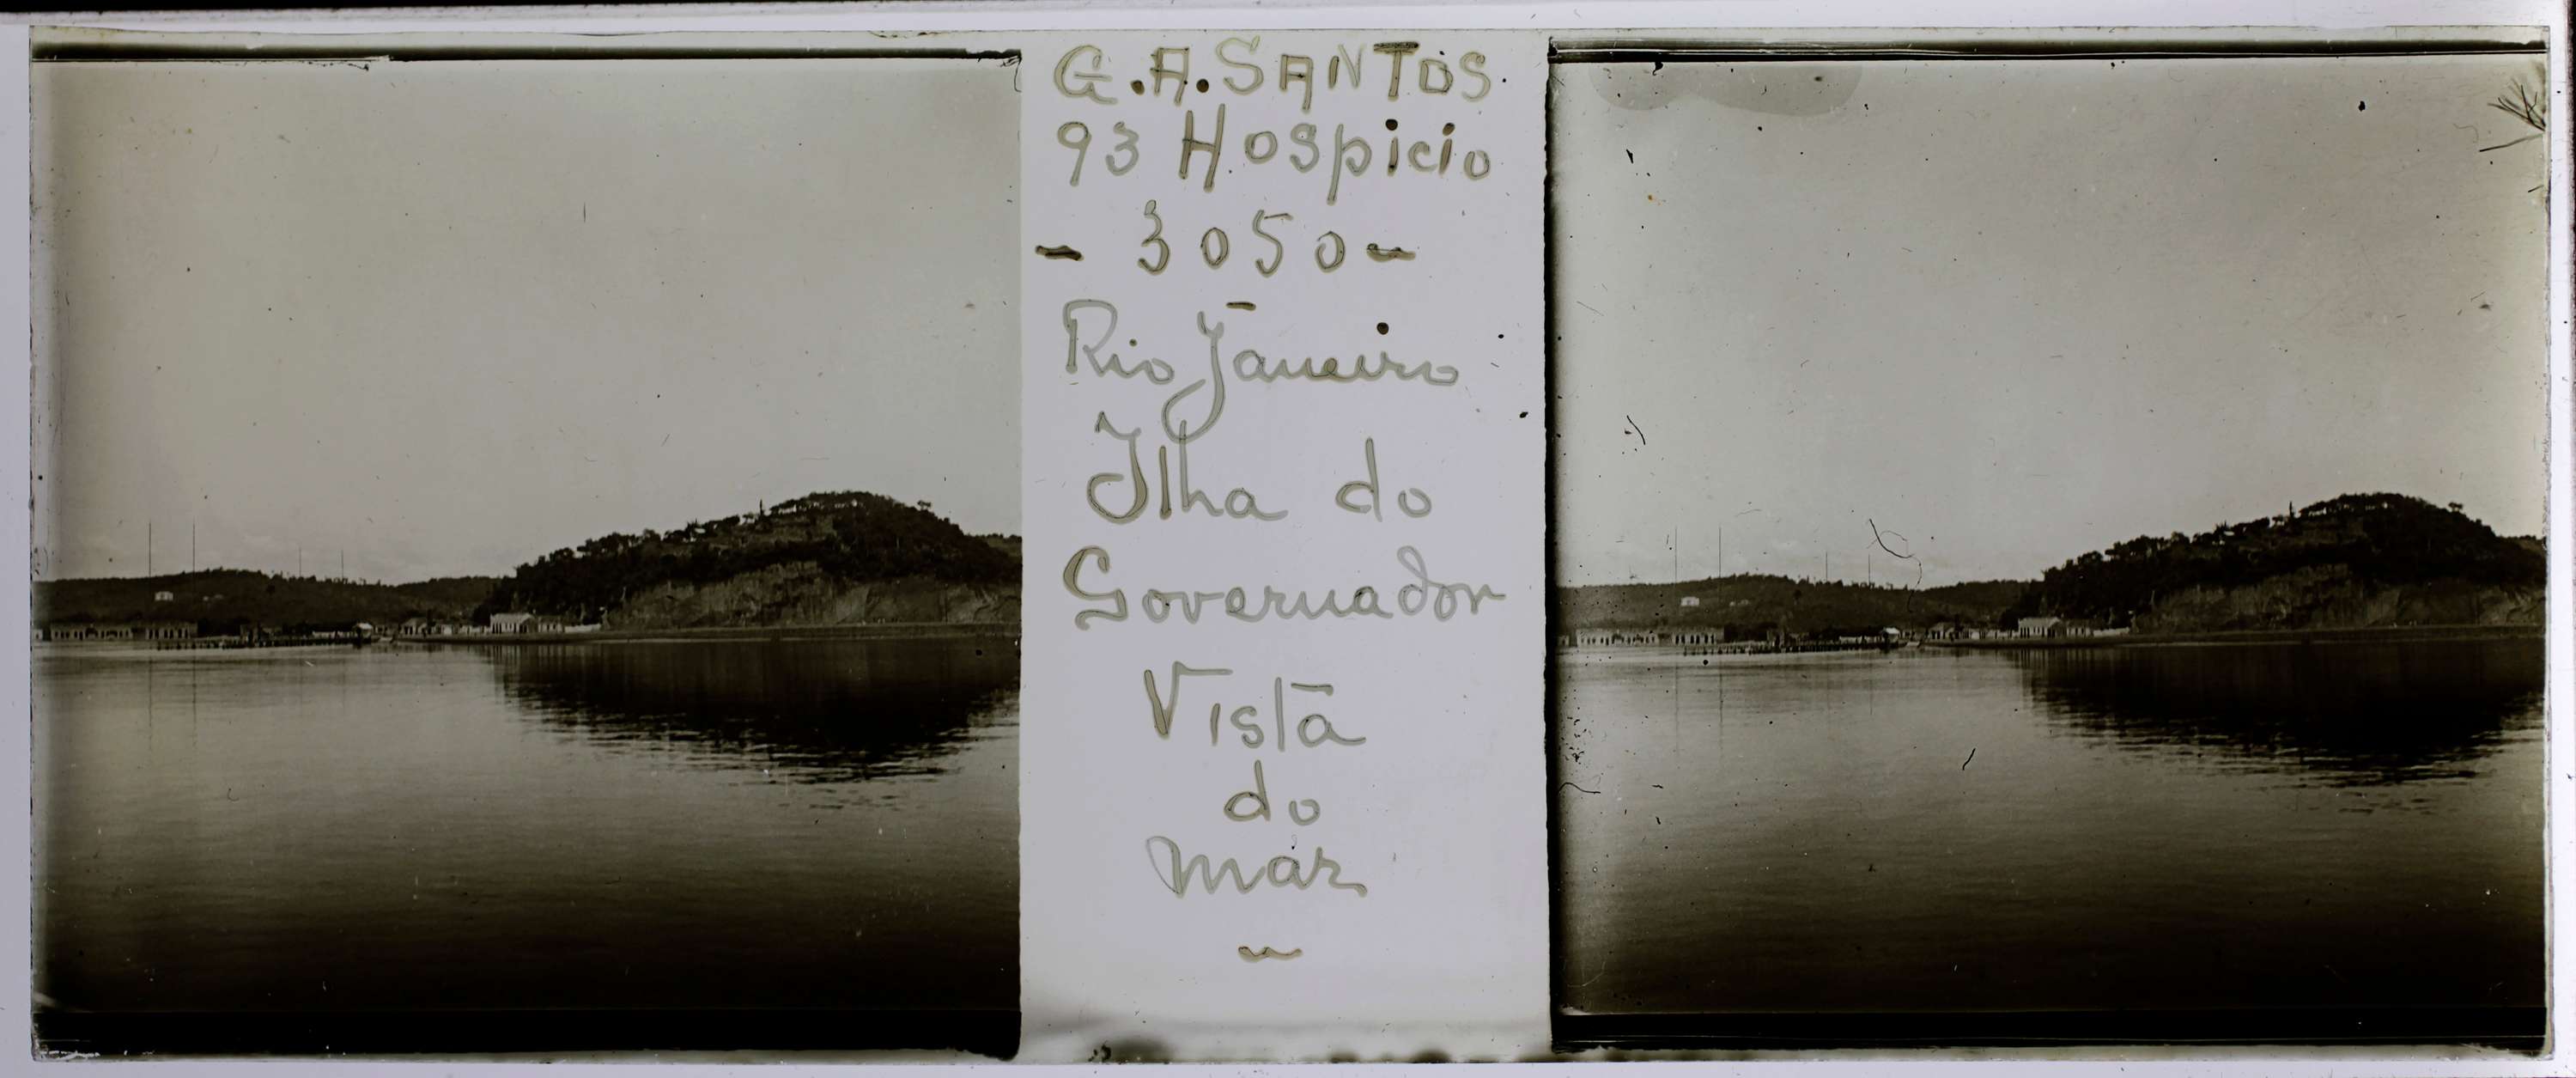 G.A. SANTOS
93 Hospicio
- 3050 -
Rio Janeiro
Ilha do
Governador
Vista
do
mar